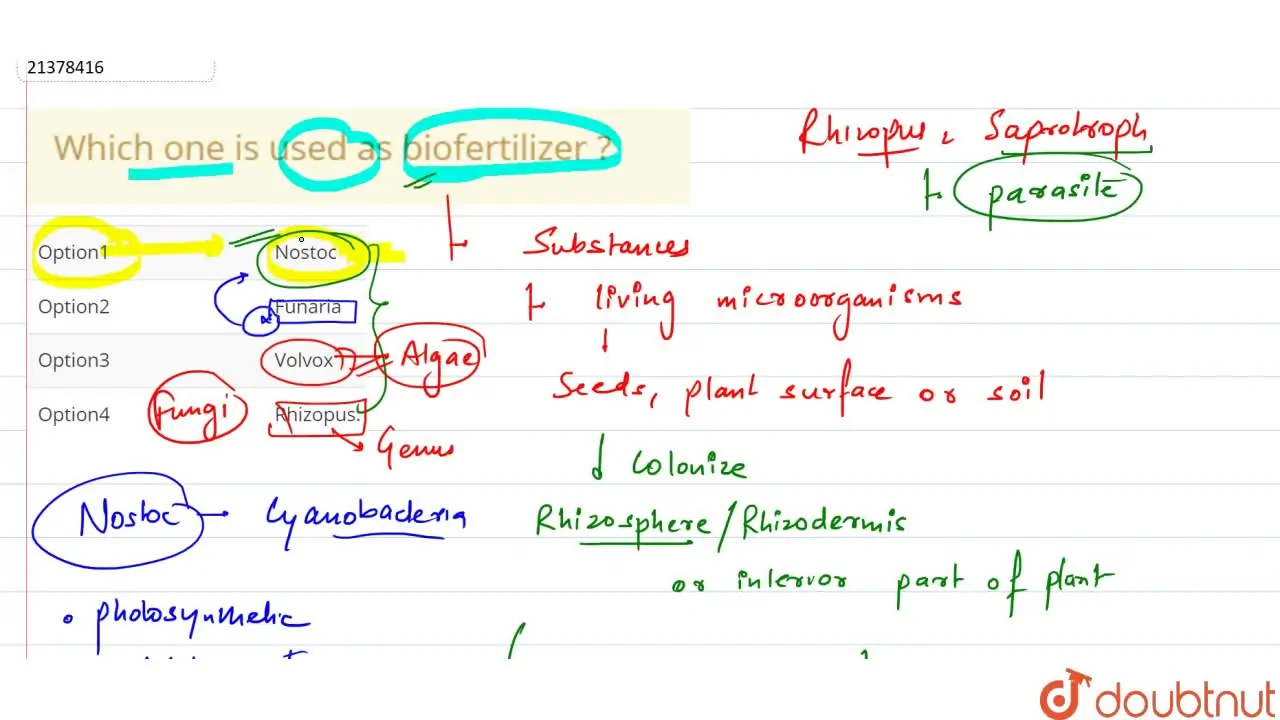 21378416
Which one is used as biofertilizer ?
Rhizopus, Saprotroph
parasite
Option1 Nostoc
Substances
Option2 Funaria
living microorganisms
Option3 Volvox
Algae
Seeds, plant surface or soil
Option4 Fungi Rhizopus.
Genus
Colonize
Nostoc Cyanobacteria
Rhizosphere / Rhizodermis
or interior part of plant
photosynthetic
doubtnut